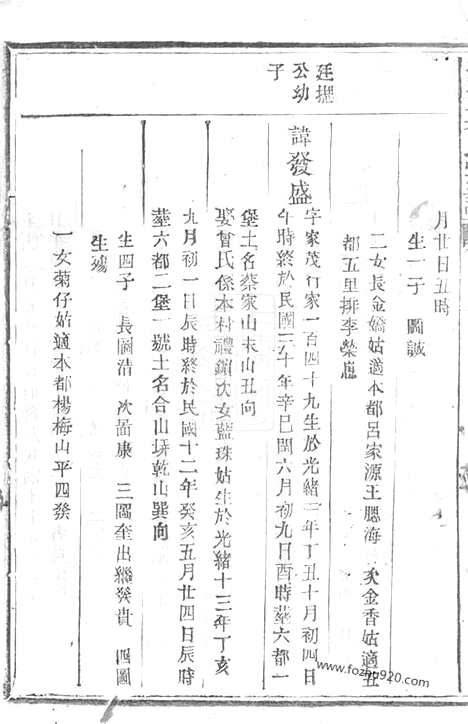 月廿日丑時
生一子　圖誠
二女長金嬌姑適本都呂家源王腮海　次金香姑適五
都五里排李榮
廷
公幼
子
諱發盛
字家茂行家一百四十九生於光緒三年丁丑十月初四日
午時終於民國三十年辛巳閏六月初九日酉時葬六都一
堡土名蔡家山未山丑向
娶曾氏係本村禮鎮次女藍珠姑生於光緒十三年丁亥
九月初一日辰時終於民國十二年癸亥五月廿四日辰時
葬六都二堡一號土名合山塀乾山巽向
生四子　長圖清　次啚康　三圖奎出繼發貴　四圖
生殤
一女菊仔姑適本都楊梅山平四發
www.fozhu920.com